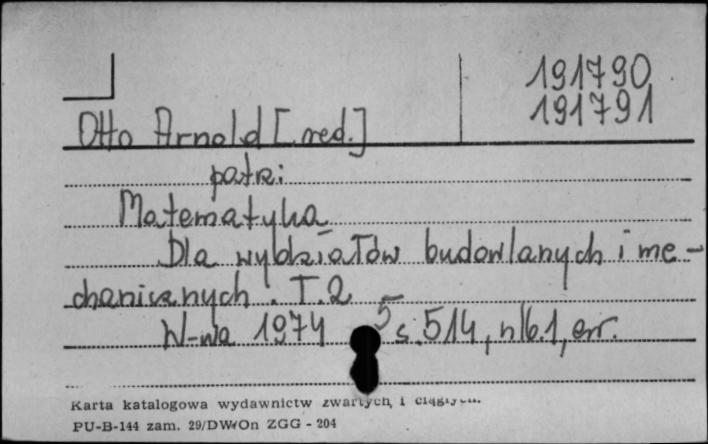 191790
191791
Otto Arnold [red.]
patrz:
Matematyka
Dla wydziałów budowlanych i me-
chanicznych. T.2
W-wa 1974 s. 514, nlb. 1, err.
Karta katalogowa wydawnictw zwartych i ciągłych.
PU-B-144 zam. 29/DWOn ZGG - 204